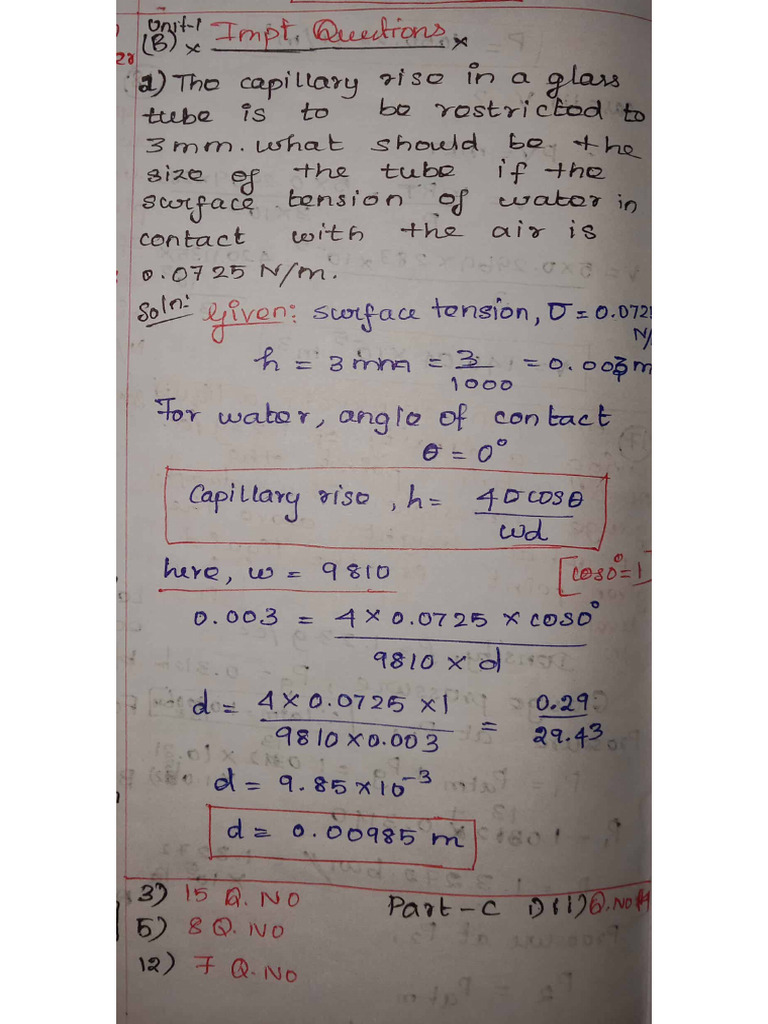 Unit-1
(B) x Impt. Questions x
2) The capillary rise in a glass
tube is to be restricted to
3mm. what should be the
size of the tube if the
surface tension of water in
contact with the air is
0.0725 N/m.
Soln: Given: surface tension, σ = 0.0725
N/
h = 3mm = 3/1000 = 0.003 m
For water, angle of contact
θ = 0°
Capillary rise, h = 4σcosθ/wd
here, w = 9810 [cos0° = 1]
0.003 = 4 × 0.0725 × cos0°/9810 × d
d = 4 × 0.0725 × 1/9810 × 0.003 = 0.29/29.43
d = 9.85 × 10⁻³
d = 0.00985 m
3) 15 Q. NO Part - C
5) 8 Q. NO
12) 7 Q. NO